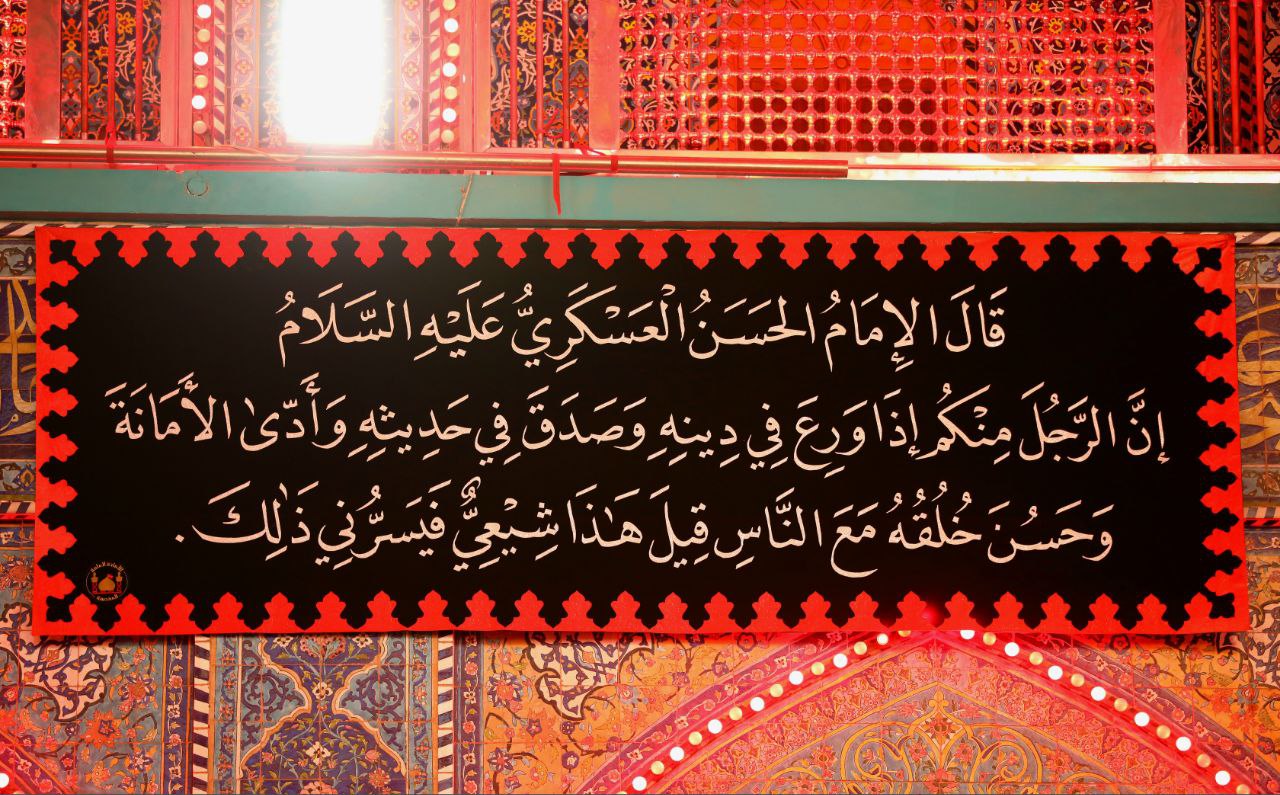 قَالَ الإِمَامُ الحَسَنُ الْعَسْكَرِيُّ عَلَيْهِ السَّلَامُ
إنَّ الرَّجُلَ مِنْكُم إذَا وَرِعَ فِي دِينِهِ وَصَدَقَ فِي حَدِيثِهِ وَأَدّىٰ الأَمَانَةَ
وَحَسُنَ خُلُقُهُ مَعَ النَّاسِ قِيلَ هَٰذَا شِيْعِيٌّ فَيَسرُّنِي ذَٰلِكَ.